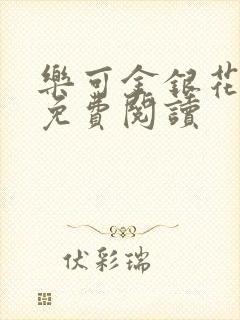 樂可金銀花
免費閱讀
伏彩瑞